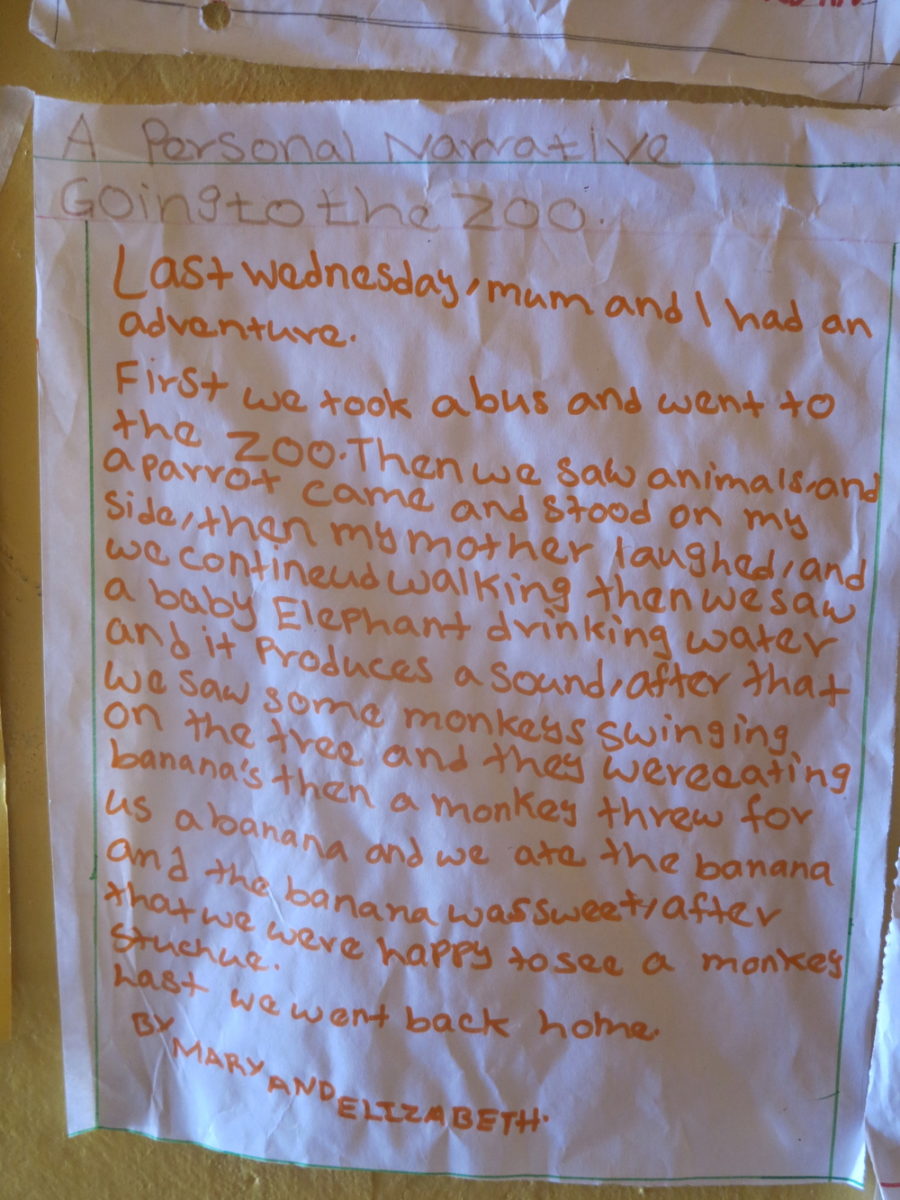 A Personal Narrative
Going to the ZOO.
Last wednesday, mum and I had an
adventure.
First we took a bus and went to
the ZOO. Then we saw animals, and
a parrot came and stood on my
side, then my mother laughed, and
we contineud walking then we saw
a baby Elephant drinking water
and it produces a sound, after that
we saw some monkeys swinging
on the tree and they were eating
banana's then a monkey threw for
us a banana and we ate the banana
and the banana was sweet, after
that we were happy to see a monkey
stuchue.
Last we went back home.
BY MARY AND ELIZABETH.